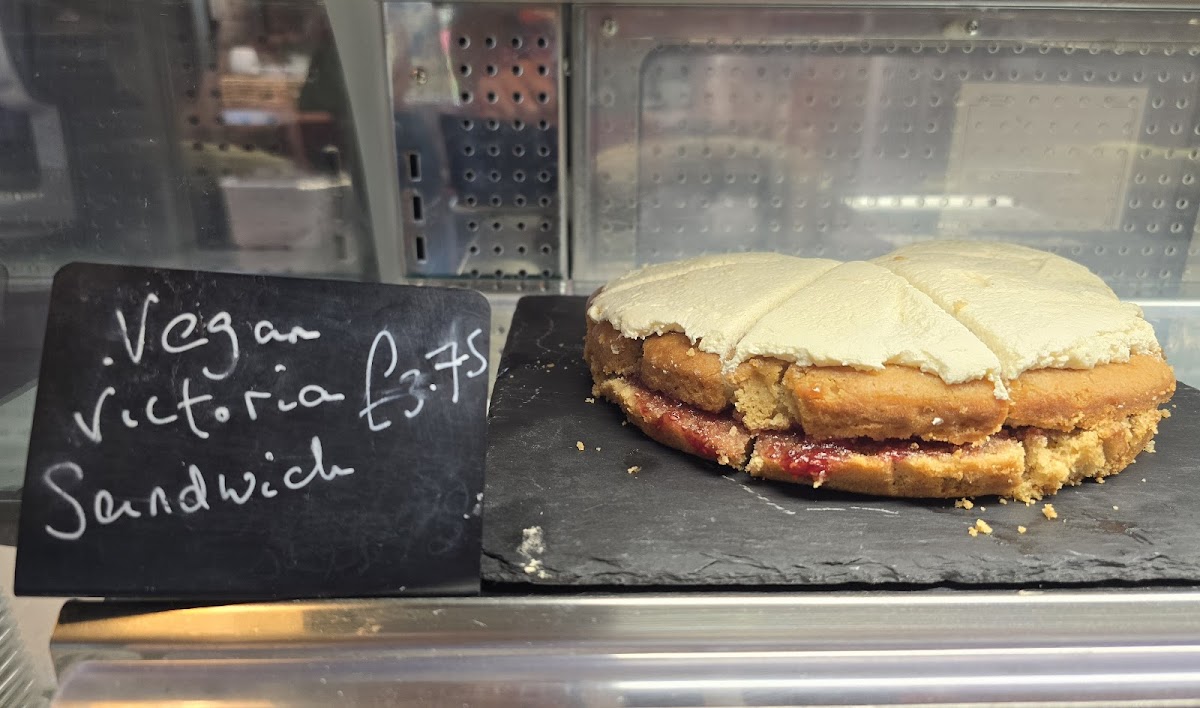 Vegan
Victoria £3.75
Sandwich